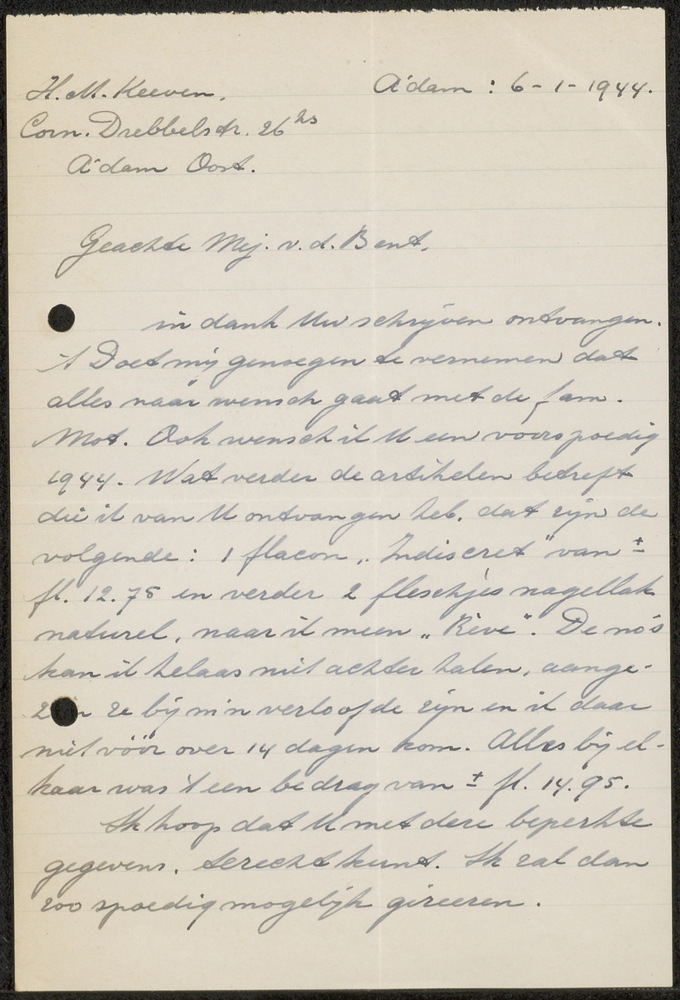 H. M. Keeven.
A'dam : 6-1-1944.
Corn. Drebbelstr. 26 hs
A'dam Oost.
Geachte Mej. v. d. Bent,
in dank Uw schrijven ontvangen.
't Doet mij genoegen te vernemen dat
alles naar wensch gaat met de fam.
Mot. Ook wensch ik U een voorspoedig
1944. Wat verder de artikelen betreft
die ik van U ontvangen heb, dat zijn de
volgende: 1 flacon „Indiscret" van ±
fl. 12.75 en verder 2 fleschjes nagellak
naturel, naar ik meen „Rêve". De no's
kan ik helaas niet achter halen, aange-
zien ze bij m'n verloofde zijn en ik daar
niet vóór over 14 dagen kom. Alles bij el-
kaar was 't een bedrag van ± fl. 14.95.
Ik hoop dat U met deze beperkte
gegevens, terecht kunt. Ik zal dan
zoo spoedig mogelijk gireeren.